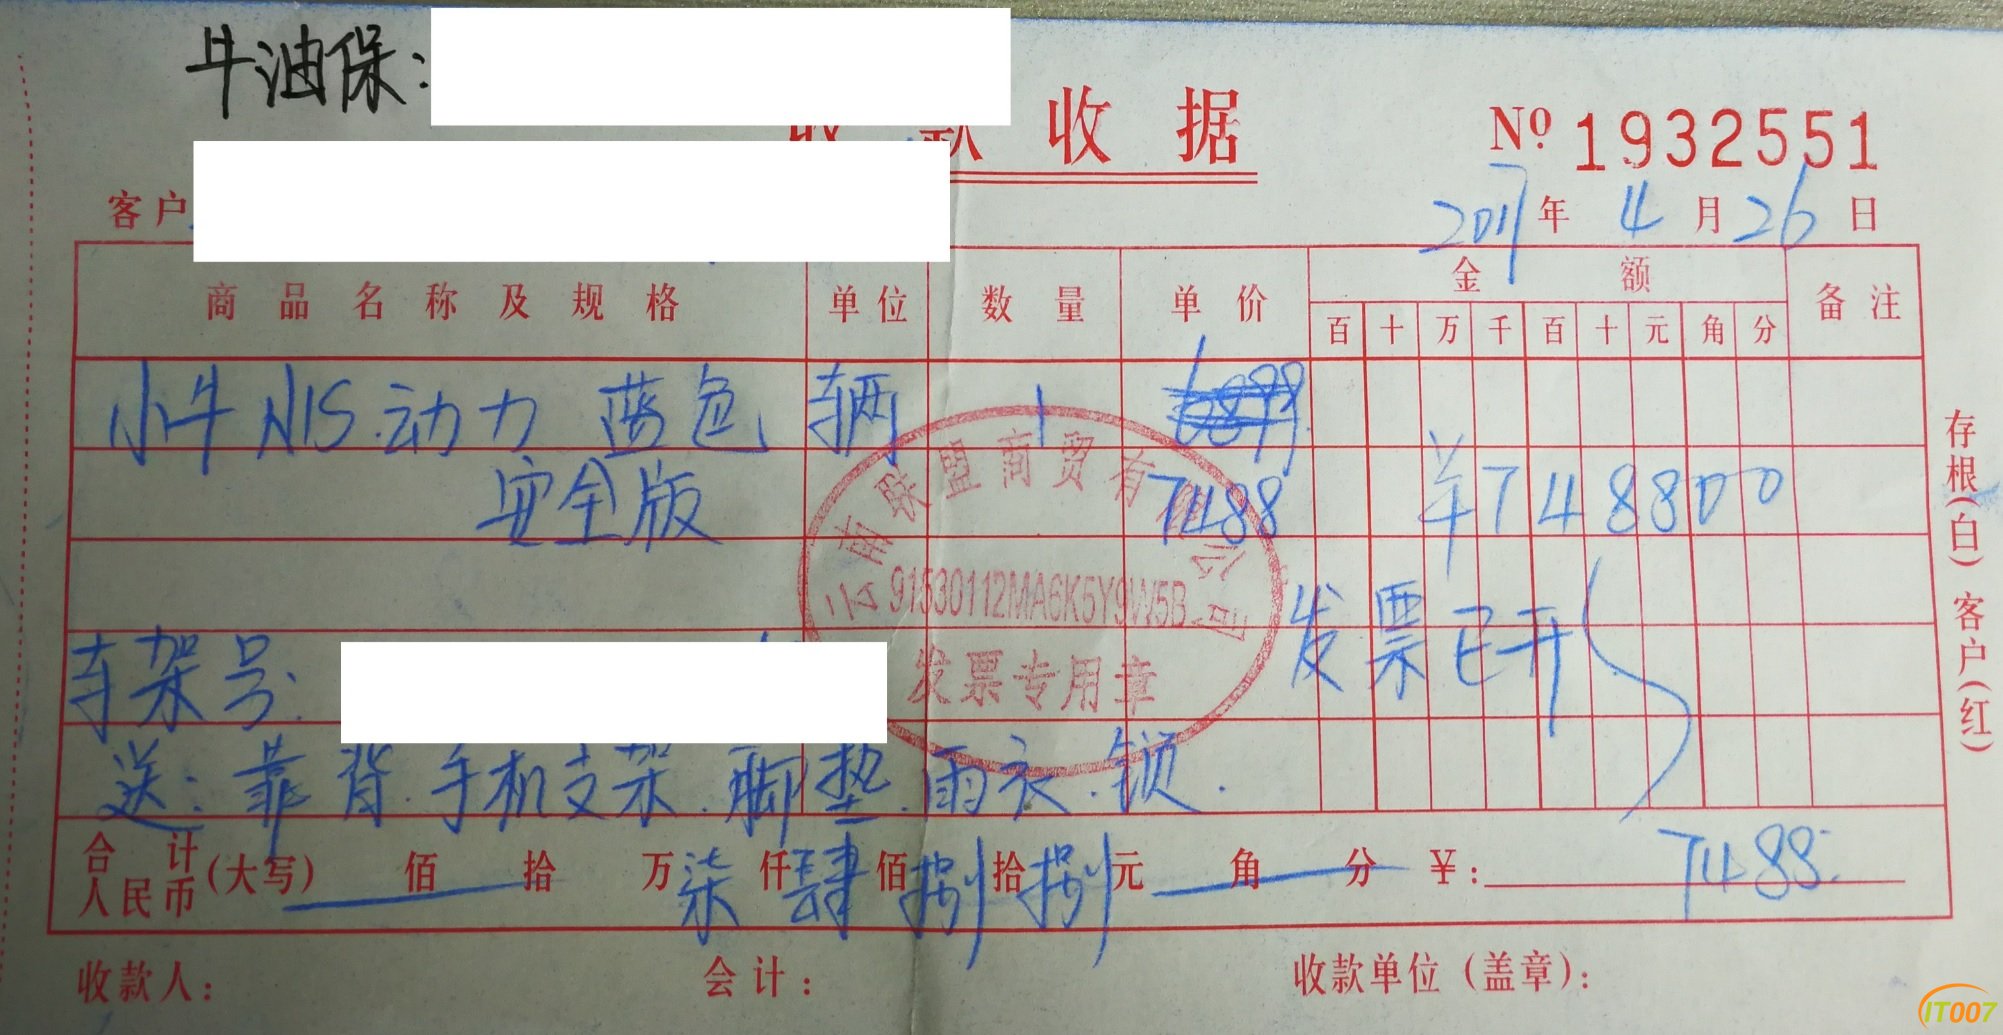 牛油保:
收款收据
№ 1932551
客户
2017年4月26日
商品名称及规格 单位 数量 单价 金额 备注
百 十 万 千 百 十 元 角 分
小牛N1S.动力 蓝色 辆 1
安全版 7488 ¥748800
云南联盟商贸有限公司
91530112MA6K5Y9W5B
发票专用章
发票已开
车架号:
送:靠背.手机支架.脚垫.雨衣.锁.
合计人民币(大写) 佰 拾 万柒仟肆佰捌拾捌元 角 分 ¥:7488.
收款人: 会计: 收款单位(盖章):
存根(白)客户(红)
IT007